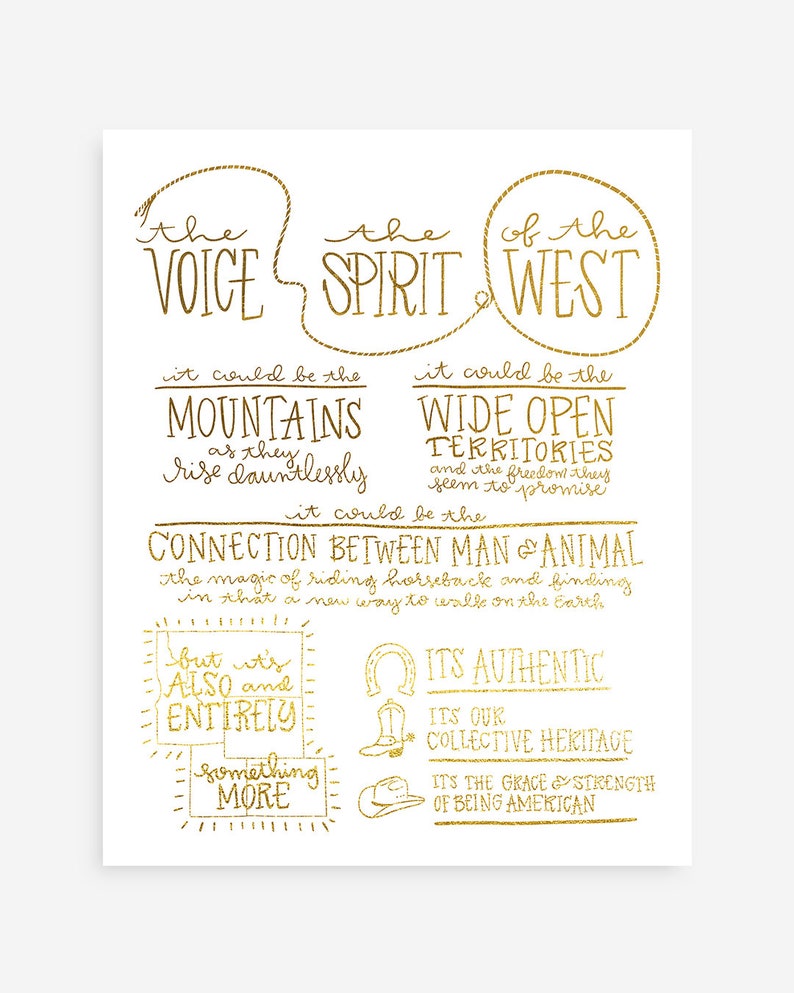 the the of the
VOICE SPIRIT WEST
it could be the
MOUNTAINS
as they
rise dauntlessly
it could be the
WIDE OPEN
TERRITORIES
and the freedom they
seem to promise
it could be the
CONNECTION BETWEEN MAN & ANIMAL
the magic of riding horseback and finding
in that a new way to walk on the Earth
but it's
ALSO and
ENTIRELY
something
MORE
ITS AUTHENTIC
ITS OUR
COLLECTIVE HERITAGE
ITS THE GRACE & STRENGTH
OF BEING AMERICAN